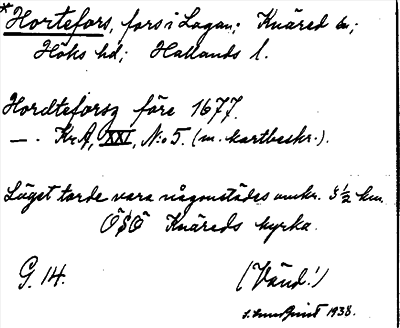 *Hortefors, fors i Lagan; Knäred sn;
Höks hd; Hallands l.
Hordteforsz före 1677.
—. KrA, XXI, N:o 5. (m. kartbeskr.).
Läget torde vara någonstädes omkr. 3 ½ km.
ÖSÖ Knäreds kyrka.
G. 14. (Vänd!)
1938.